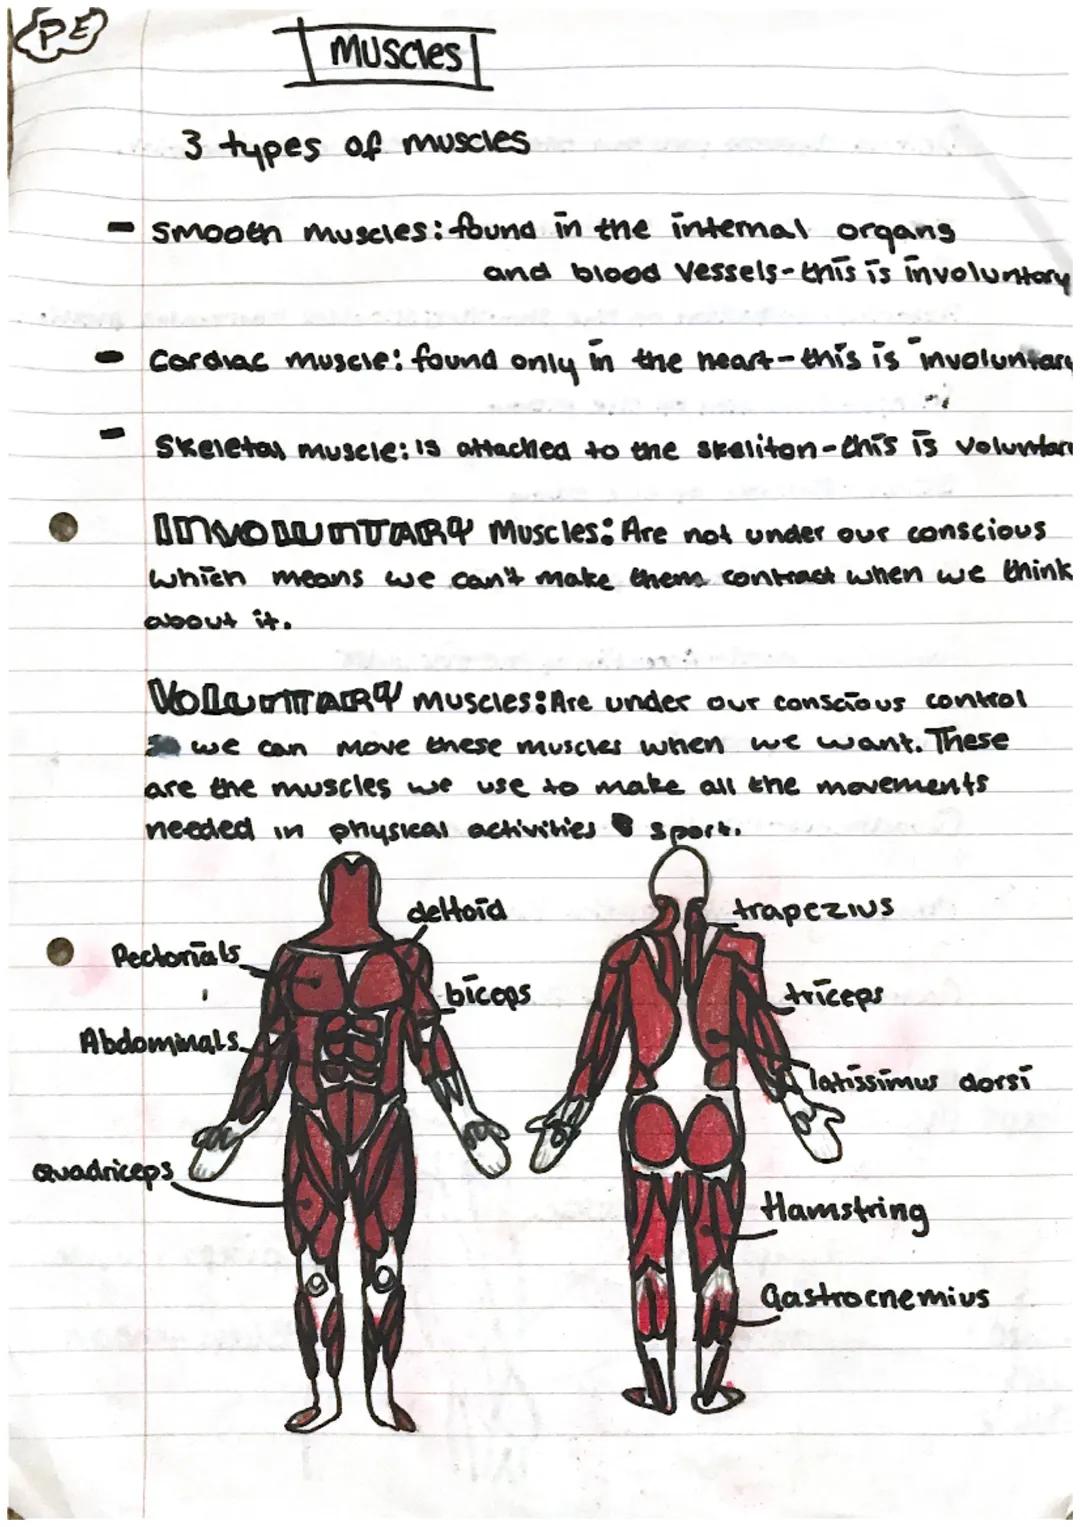 PE
Muscles
3 types of muscles
- Smooth muscles: found in the internal organs
and blood vessels - this is involuntary
- Cardiac muscle: found only in the heart - this is involuntary
- Skeletal muscle: is attached to the skeliton - this is voluntary
INVOLUNTARY Muscles: Are not under our conscious
which means we can't make them contract when we think
about it.
VOLLUNTARY muscles: Are under our conscious control
so we can move these muscles when we want. These
are the muscles we use to make all the movements
needed in physical activities & sport.
deltoid
trapezius
Pectorials
biceps
triceps
Abdominals
latissimus dorsi
Quadriceps
Hamstring
Gastrocnemius